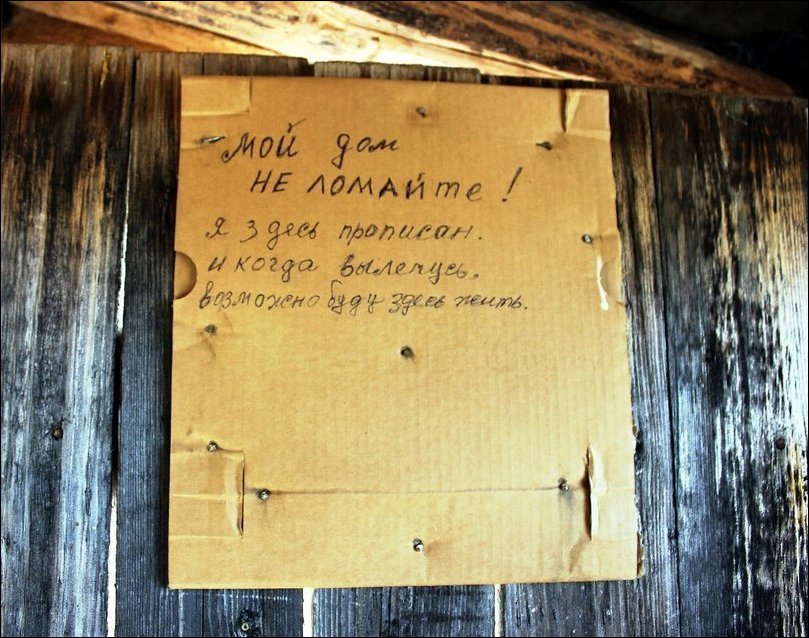 мой дом
не ломайте!
я здесь прописан.
и когда вылечусь.
возможно буду здесь жить.